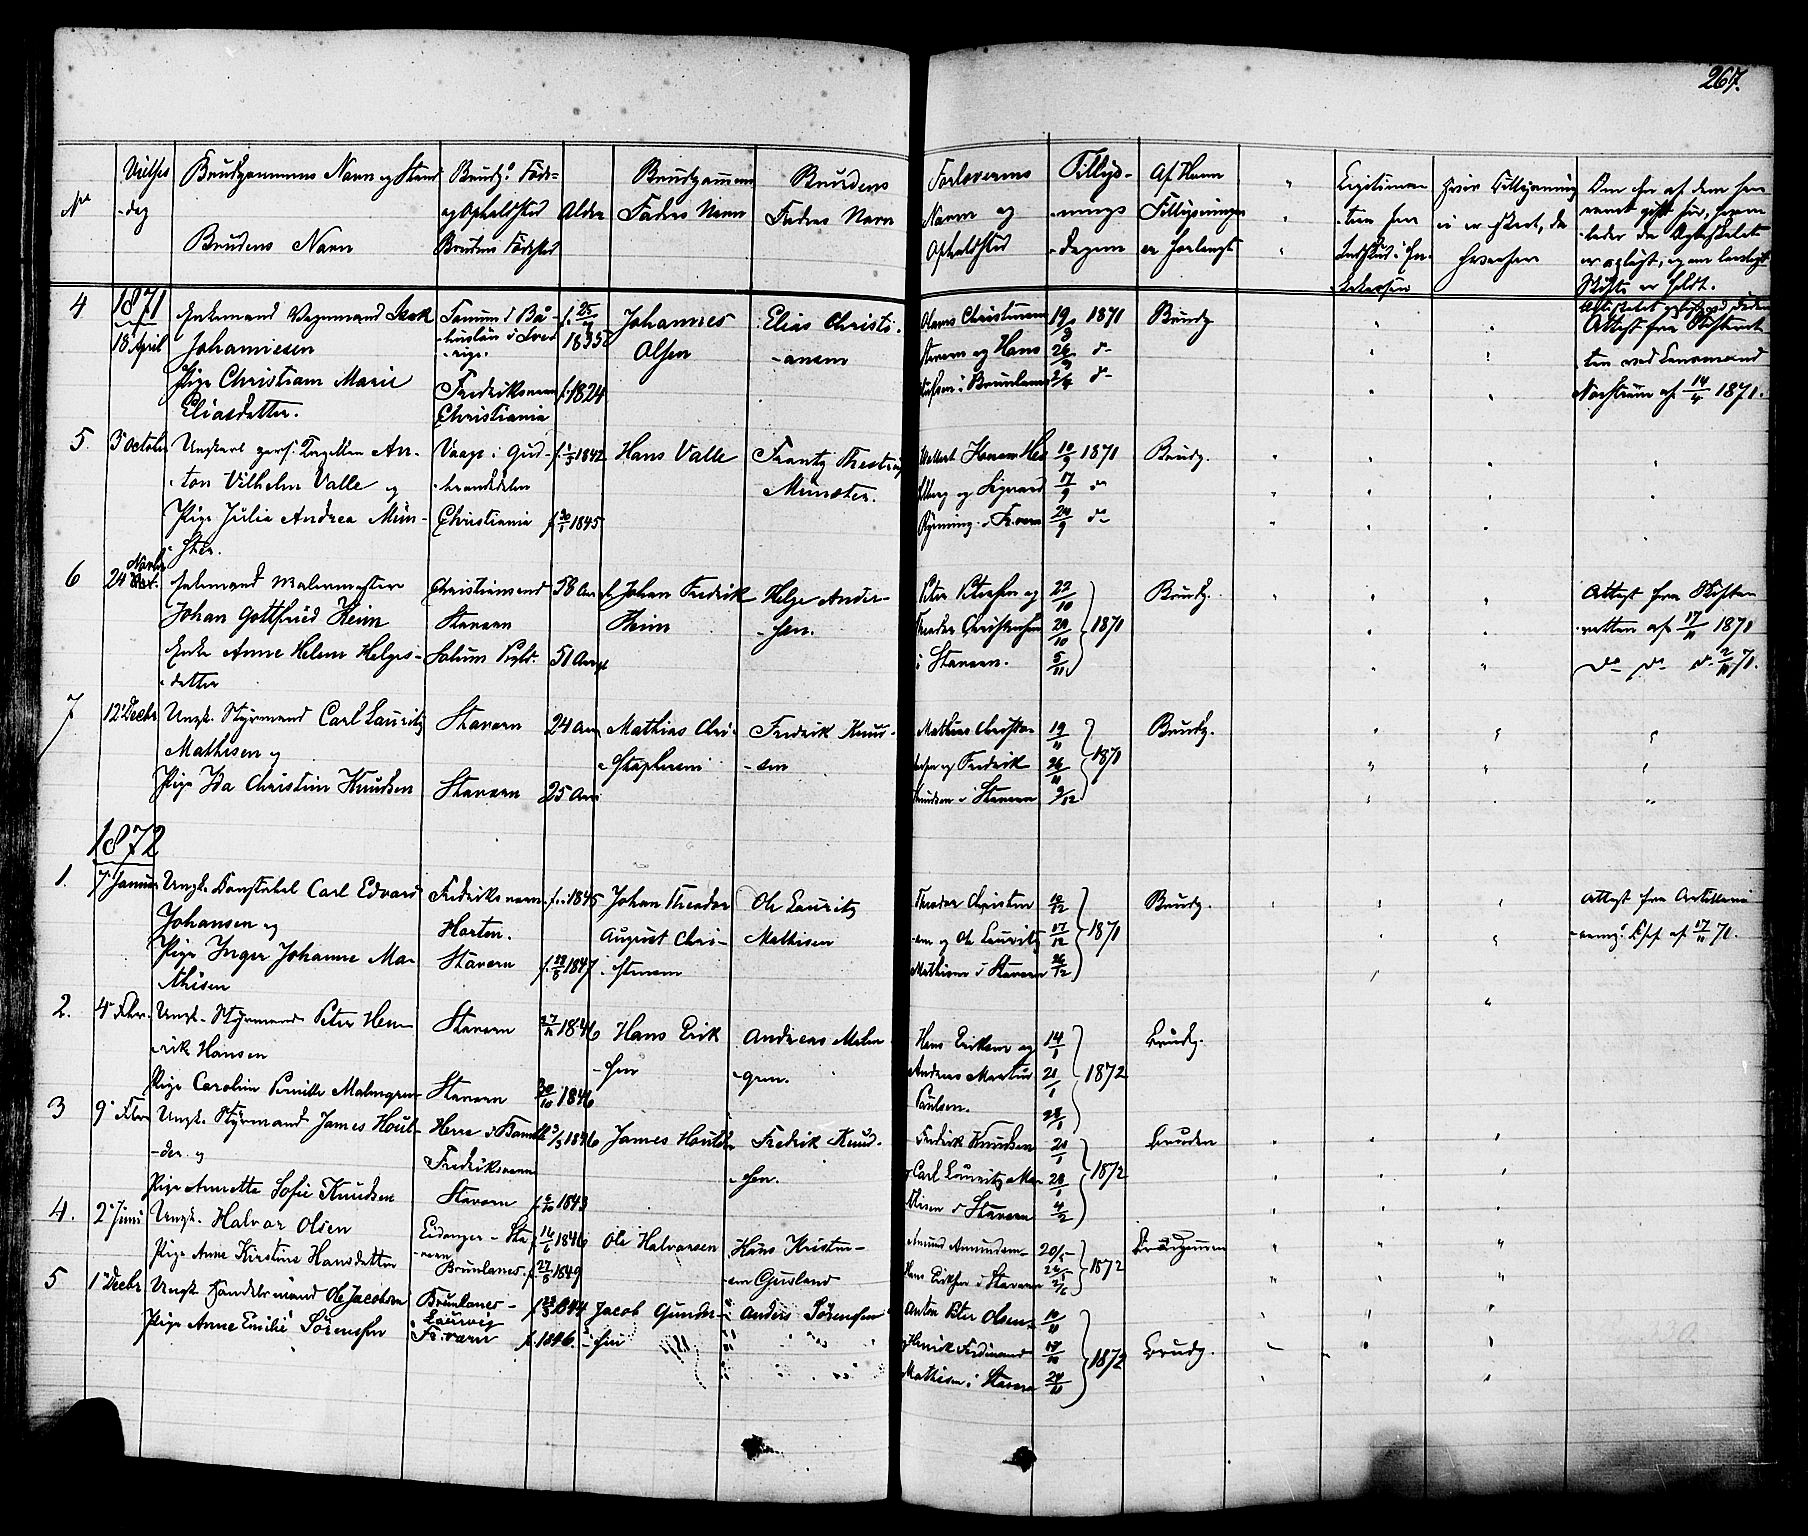 267.
No
Vielses
-dag
Brudgommens Navn og Stand
Brudens Navn
Brudg.s Føde-
og Opholdsted
Brudens Fødested
Alder
Brudgommens
Faders Navn
Brudens
Faders Navn
Forloverens
Navn og
Opholdsted
Tillys-
-nings
-dagene
Af hvem
Tillysningen
er forlangt
Legitima-
-tion for
Hvis Tillysning
ei er skeet, da
Om En af dem har
været gift før,
er opløst,
Skifte er holdt.
1871
4
18 April
Enkemand Isak
Johannesen
Pige Christiane Marie
Eliasdatter.
Tanum i Bå-
huslän i Sve-
-rige.
Fredriksværn
Christiania
f. 25/7
1835
f. 1824
Johannes
Olsen
Elias Christi-
-ansen
Christensen
Stavern og Hans
i Brunlanes
19/3 1871
26/3 do
2/4 do
Brudg
Attest fra Skifteret-
ten ved Lensmand
Norstrøm af 14/4 1871.
5.
3 October
Ungkarl An-
ton Vilhelm Valle og
Pige Julia Andrea Mün-
ster.
Vaage i Gud-
-brandsdalen
Christiania
f. 1/5 1842
f. 30/1 1845
Hans Valle
Frantz
Münster.
og Sigvard
Rynning i Fr.værn
10/9 1871
17/9 do
24/9 do
Brudg.
6
24 Novbr
Enkemand Malermester
Johan Gottfried Heim
Enke Anne Helene Helges-
datter
Christiansand
Stavern
Solum
58 Aar
51 Aar
Johan Fredrik
Heim
Helge Ander-
-sen.
Peter Petersen og
Theodor Christensen
i Stavern.
22/10
29/10
5/11
1871
Brudg.
Attest fra Skifte-
retten af 17/10 1871
do do d. 2/11 71.
7
12 Decbr
Ungk. Styrmand Carl Lauritz
Mathisen og
Pige Ida Christine Knudsen
Stavern
Stavern
24 Aar
25 Aar
Mathias Chri-
-stophersen
Fredrik Knud-
-sen
Mathias Christo-
-fersen og Fredrik
Knudsen i Stavern
19/11
26/11
3/12
1871
Brudg.
1872
1.
7 Januar
Ungk. Konstabel Carl Edvard
Johansen og
Pige Inger Johanne Ma-
thisen
Fredriksværn
Horten.
Stavern
f. 1845
f. 22/8 1847
Johan Theodor
August Chri-
-stensen
Ole Lauritz
Mathisen
Theodor Christen-
-sen og Ole Lauritz
Mathisen i Stavern
10/12
17/12
26/12
1871
Brudg.
Attest fra Artilleri
af 17/11 71.
2.
4 Febr.
Ungk. Styrmand Peter Hen-
-rik Hansen
Pige Caroline Pernille Malmgren
Stavern
Stavern
27/11 1846
30/10 1846
Hans Erik-
-sen
Andreas Malm-
-gren.
Hans Eriksen og
Andreas Martin
Paulsen.
14/1
21/1
28/1
1872
Brudg.
3
9 Febr
Ungk. Styrmand James Houl-
-der og
Pige Annette Sofie Knudsen
Herre i Bamble
Fredriksværn
Stavern
3/5 1846
f. 6/10 1843
James Houlder
Fredrik Knud-
-sen.
Fredrik Knudsen
og Carl Lauritz Ma-
thisen i Stavern
21/1
28/1
4/2
1872
Bruden
4.
2 Juni
Ungk. Halvor Olsen
Pige Anne Kirstine Hansdatter
Eidanger - Sta-
-vern
Brunlanes.
f. 16/6 1846
f. 27/8 1849
Ole Halvorsen
Hans Kristen-
-sen Gusland
Amund Amundsen
Hans Eriksen i Stavern
20/5
26/5
2/6
1872
Brudgommen
5
1 Decbr
Ungk. Handelsmand Ole Jacobsen
Pige Anne Emilie Sørensen
Brunlanes -
Laurvig
Fr.værn
f. 23/3 1844
f. 1846.
Jacob Gunder-
-sen
Anders Sørensen
Anton Peter Olsen
og Henrik Ferdinand
Mathisen i Stavern
10/11
17/11
24/11
1872
Brudg.